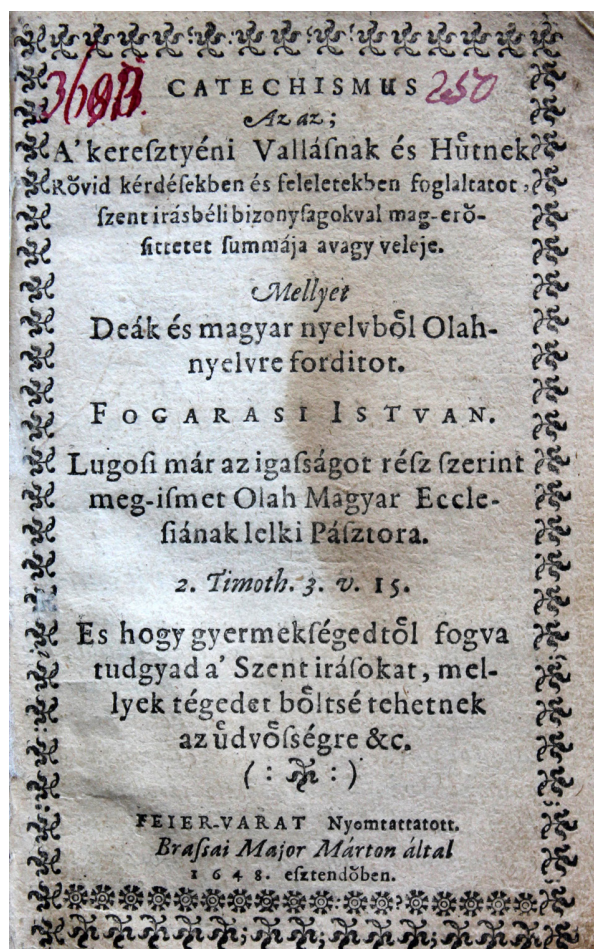 CATECHISMUS 250
Az az;
A' kereſztyéni Valláſnak és Hůtnek
Rŏvid kérdéſekben és feleletekben foglaltatot,
ſzent irásbéli bizonyſagokval mag-erŏ-
ſittetet ſummája avagy veleje.
Mellyet
Deák és magyar nyelvbo̊l Olah-
nyelvre forditot.
FOGARASI ISTVAN.
Lugoſi már az igaſságot réſz ſzerint
meg-iſmet Olah Magyar Eccle-
ſiának lelki Páſztora.
2. Timoth. 3. v. 15.
Es hogy gyermekſégedto̊l fogva
tudgyad a' Szent iráſokat, mel-
lyek tégedet bo̊ltsé tehetnek
az ůdvo̊ſségre &c.
( : : )
FEIER-VARAT Nyomtattatott.
Braſsai Major Márton által
1648. eſztendŏben.